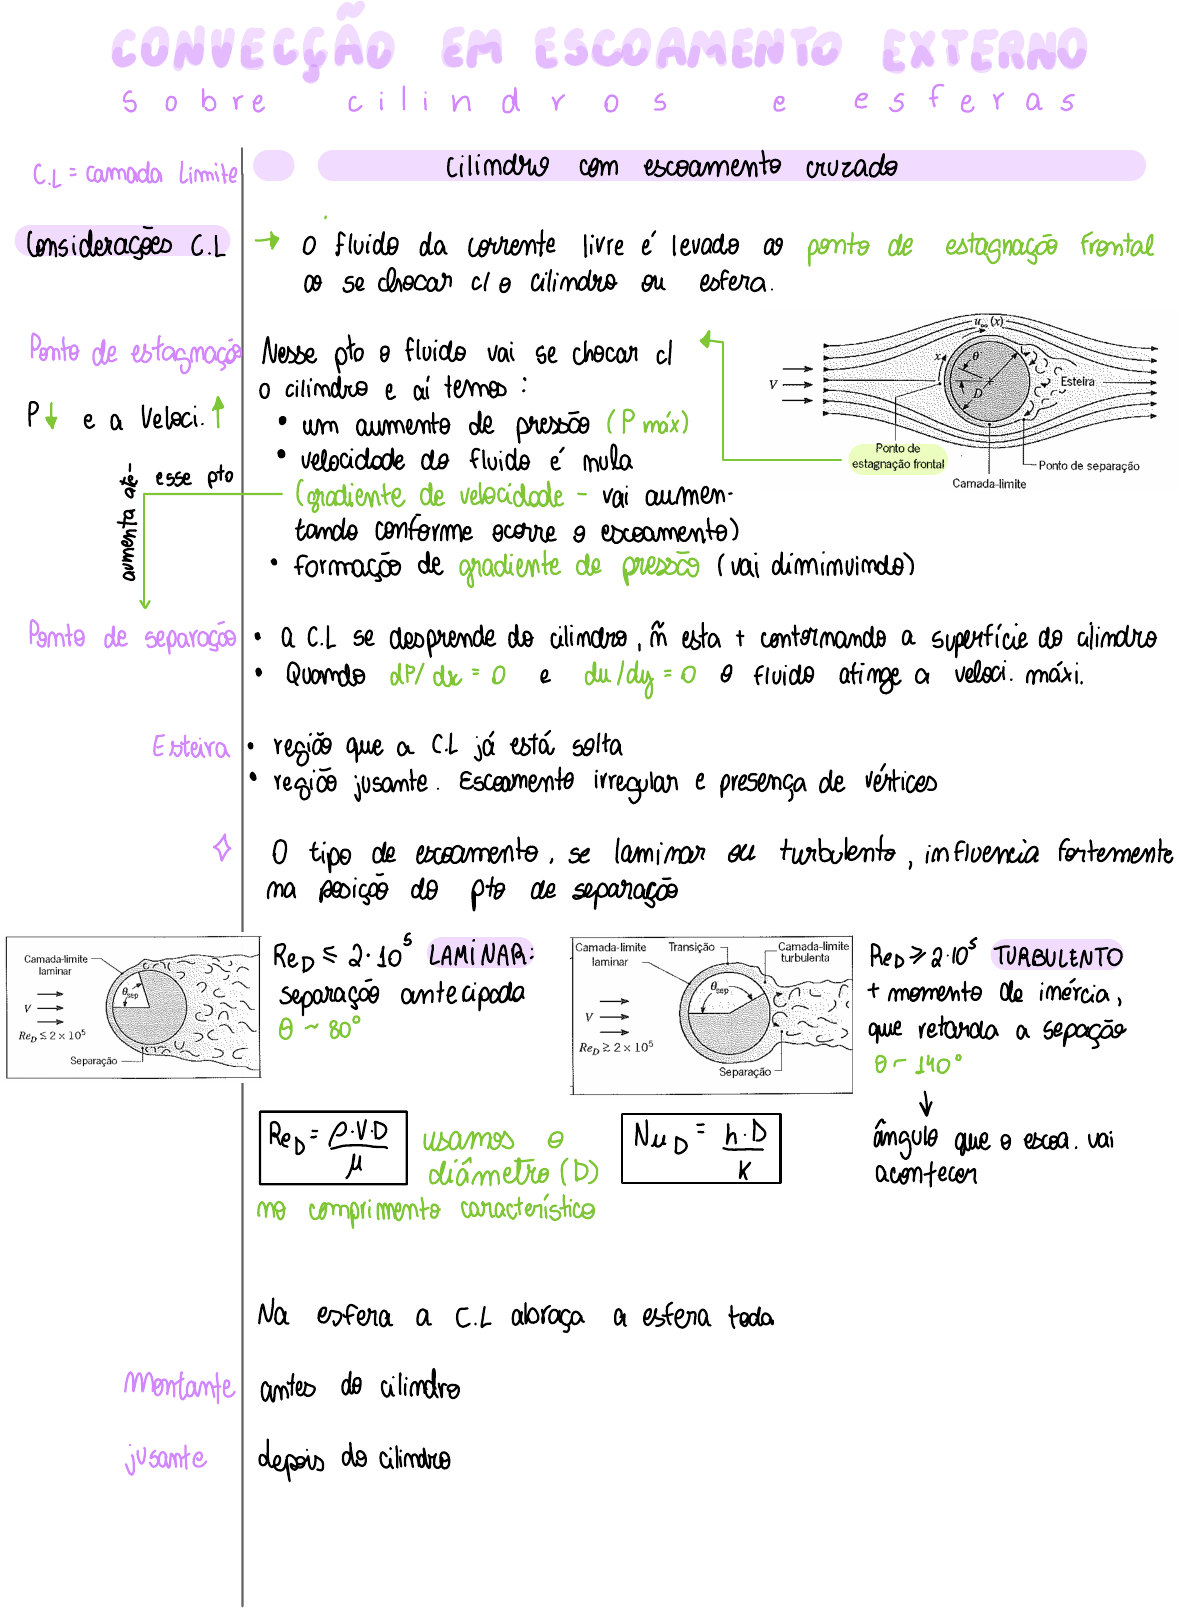 CONVECÇÃO EM ESCOAMENTO EXTERNO
Sobre cilindros e esferas
C.L = camada limite
Cilindro com escoamento cruzado
Considerações C.L
→ O fluido da corrente livre é levado ao ponto de estagnação frontal
ao se chocar c/ o cilindro ou esfera.
Ponto de estagnação
P ↓ e a Veloci. ↑
Nesse pto o fluido vai se chocar c/
o cilindro e aí temos :
• um aumento de pressão (P máx)
• velocidade do fluido é nula
(gradiente de velocidade - vai aumen-
tando conforme ocorre o escoamento)
• formação de gradiente de pressão (vai diminuindo)
aumenta até- esse pto
u∞ (x)
x
θ
D
V
Esteira
Ponto de
estagnação frontal
Ponto de separação
Camada-limite
Ponto de separação
• a C.L se desprende do cilindro, ñ esta + contornando a superfície do cilindro
• Quando dP/dx = 0 e du/dy = 0 o fluido atinge a veloci. máxi.
Esteira
• região que a C.L já está solta
• região jusante. Escoamento irregular e presença de vértices
O tipo de escoamento, se laminar ou turbulento, influencia fortemente
na posição do pto de separação
Camada-limite
laminar
θsep
V
ReD ≲ 2 × 10⁵
Separação
ReD ≤ 2·10⁵ LAMINAR:
separação antecipada
θ ~ 80°
Camada-limite
laminar
Transição
Camada-limite
turbulenta
θsep
V
ReD ≳ 2 × 10⁵
Separação
ReD ≥ 2·10⁵ TURBULENTO
+ momento de inércia,
que retarda a sepação
θ ~ 140°
↓
ângulo que o escoa. vai
acontecer
ReD = ρ·V·D / μ
usamos o
diâmetro (D)
no comprimento característico
NuD = h·D / K
Na esfera a C.L abraça a esfera toda
Montante antes do cilindro
jusante depois do cilindro